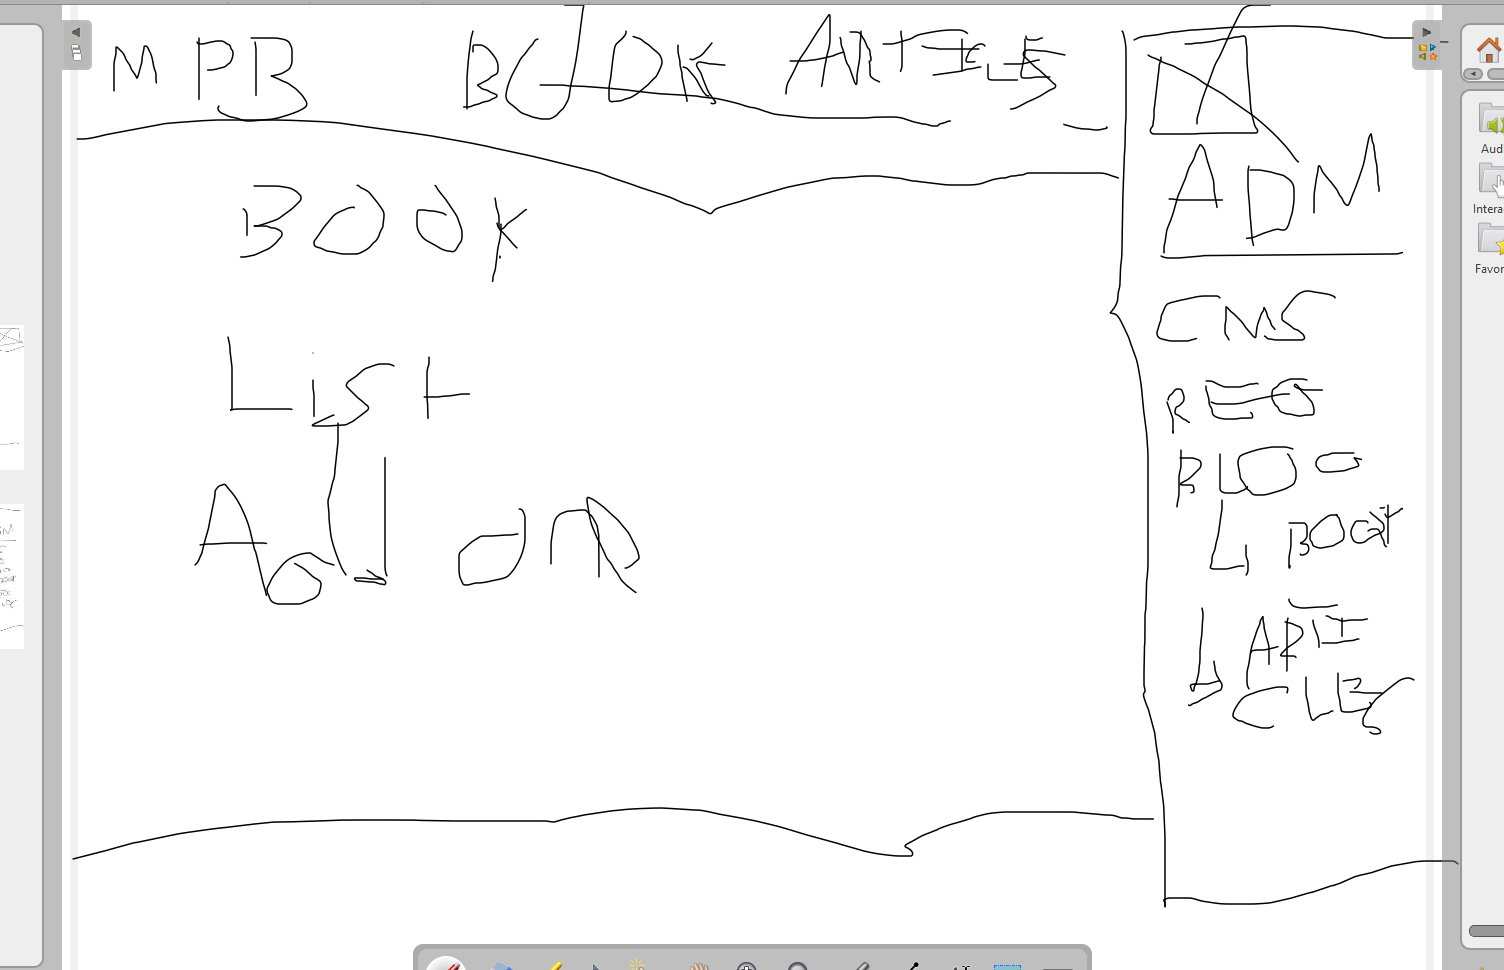 MPB BOOK ARTICLES
BOOK
List
Add on
ADM
CMS
REG
BLOG
BOOK
ARTI
CLES
Aud
Intera
Favor